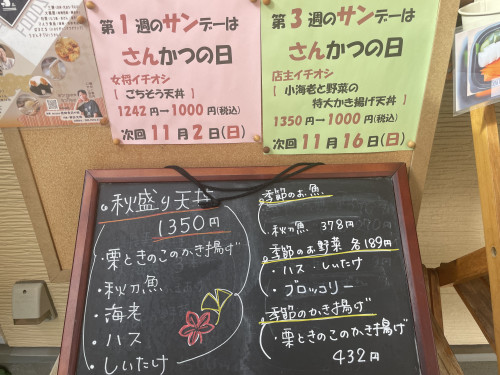 第1週のサンデーは
さんかつの日
女将イチオシ
[ ごちそう天丼 ]
1242円→1000円(税込)
次回11月2日(日)
第3週のサンデーは
さんかつの日
店主イチオシ
[ 小海老と野菜の
特大かき揚げ天丼 ]
1350円→1000円(税込)
次回11月16日(日)
秋盛り天丼
1350円
・栗ときのこのかき揚げ
・秋刀魚
・海老
・ハス
・しいたけ
季節のお魚
・秋刀魚 378円
季節のお野菜 各189円
・ハス・しいたけ
・ブロッコリー
季節のかき揚げ
・栗ときのこのかき揚げ
432円